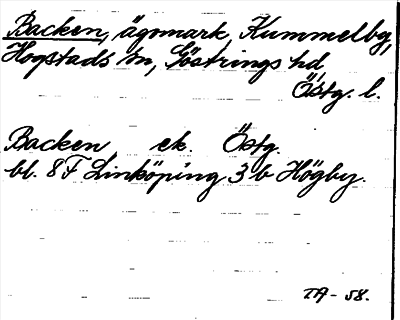 Backen, ägomark, Kummelby,
Hogstads sn, Göstrings hd,
Östg. l.
Backen ek. Östg.
bl. 8F Linköping 3b Högby.
TA-58.